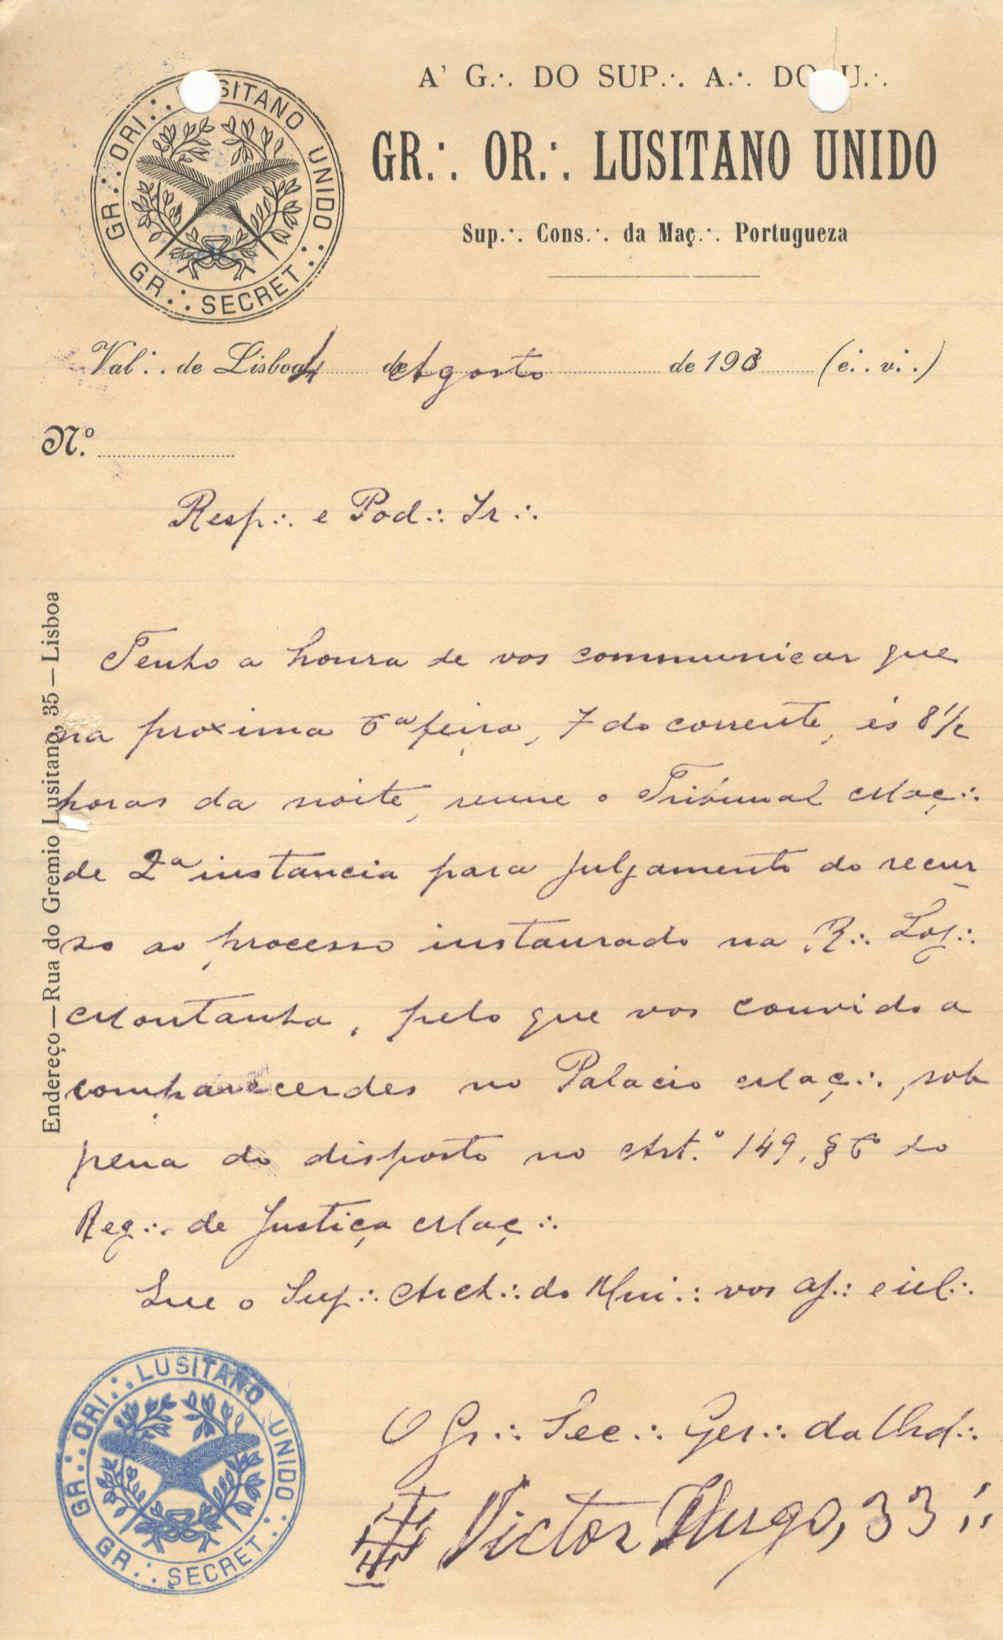 GR.·. ORI.·. LUSITANO UNIDO.·.
GR.·. SECRET.·.
A' G.·. DO SUP.·. A.·. DO U.·.
GR.·. OR.·. LUSITANO UNIDO
Sup.·. Cons.·. da Maç.·. Portugueza
Val.·. de Lisboa, 4 de Agosto de 190 (e.·. v.·.)
N.º
Resp.·. e Pod.·. Ir.·.
Tenho a honra de vos communicar que
na proxima 6ª feira, 7 do corrente, ás 8 1/2
horas da noite, reune o Tribunal Maç.·.
de 2ª instancia para julgamento do recur
so ao processo instaurado na R.·. Loj.·.
Montanha, pelo que vos convido a
comparecerdes no Palacio Maç.·., sob
pena do disposto no Art.º 149, § 6º do
Reg.·. de Justiça Maç.·.
Que o Sup.·. Arch.·. do Uni.·. vos aj.·. e il.·.
O Gr.·. Sec.·. Ger.·. da Ord.·.
Victor Hugo, 33.·.
GR.·. ORI.·. LUSITANO UNIDO.·.
GR.·. SECRET.·.
Endereço—Rua do Gremio Lusitano, 35—Lisboa